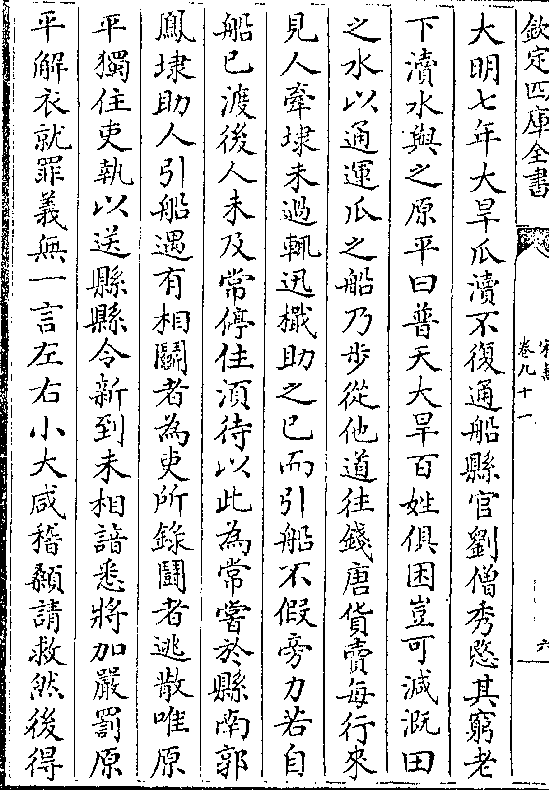 欽定四庫全書
宋書
卷九十一
六
大明七年大旱瓜瀆不復通船縣官劉僧秀愍其窮老
下瀆水與之原平曰普天大旱百姓俱困豈可減溉田
之水以通運瓜之船乃步從他道往錢唐貨賣每行來
見人牽埭未過輒迅檝助之已而引船不假旁力若自
船已渡後人未及常停住須待以此為常嘗於縣南郭
鳳埭助人引船遇有相鬭者為吏所錄鬭者逃散唯原
平獨住吏執以送縣縣令新到未相諳悉將加嚴罰原
平解衣就罪義無一言左右小大咸稽顙請救然後得